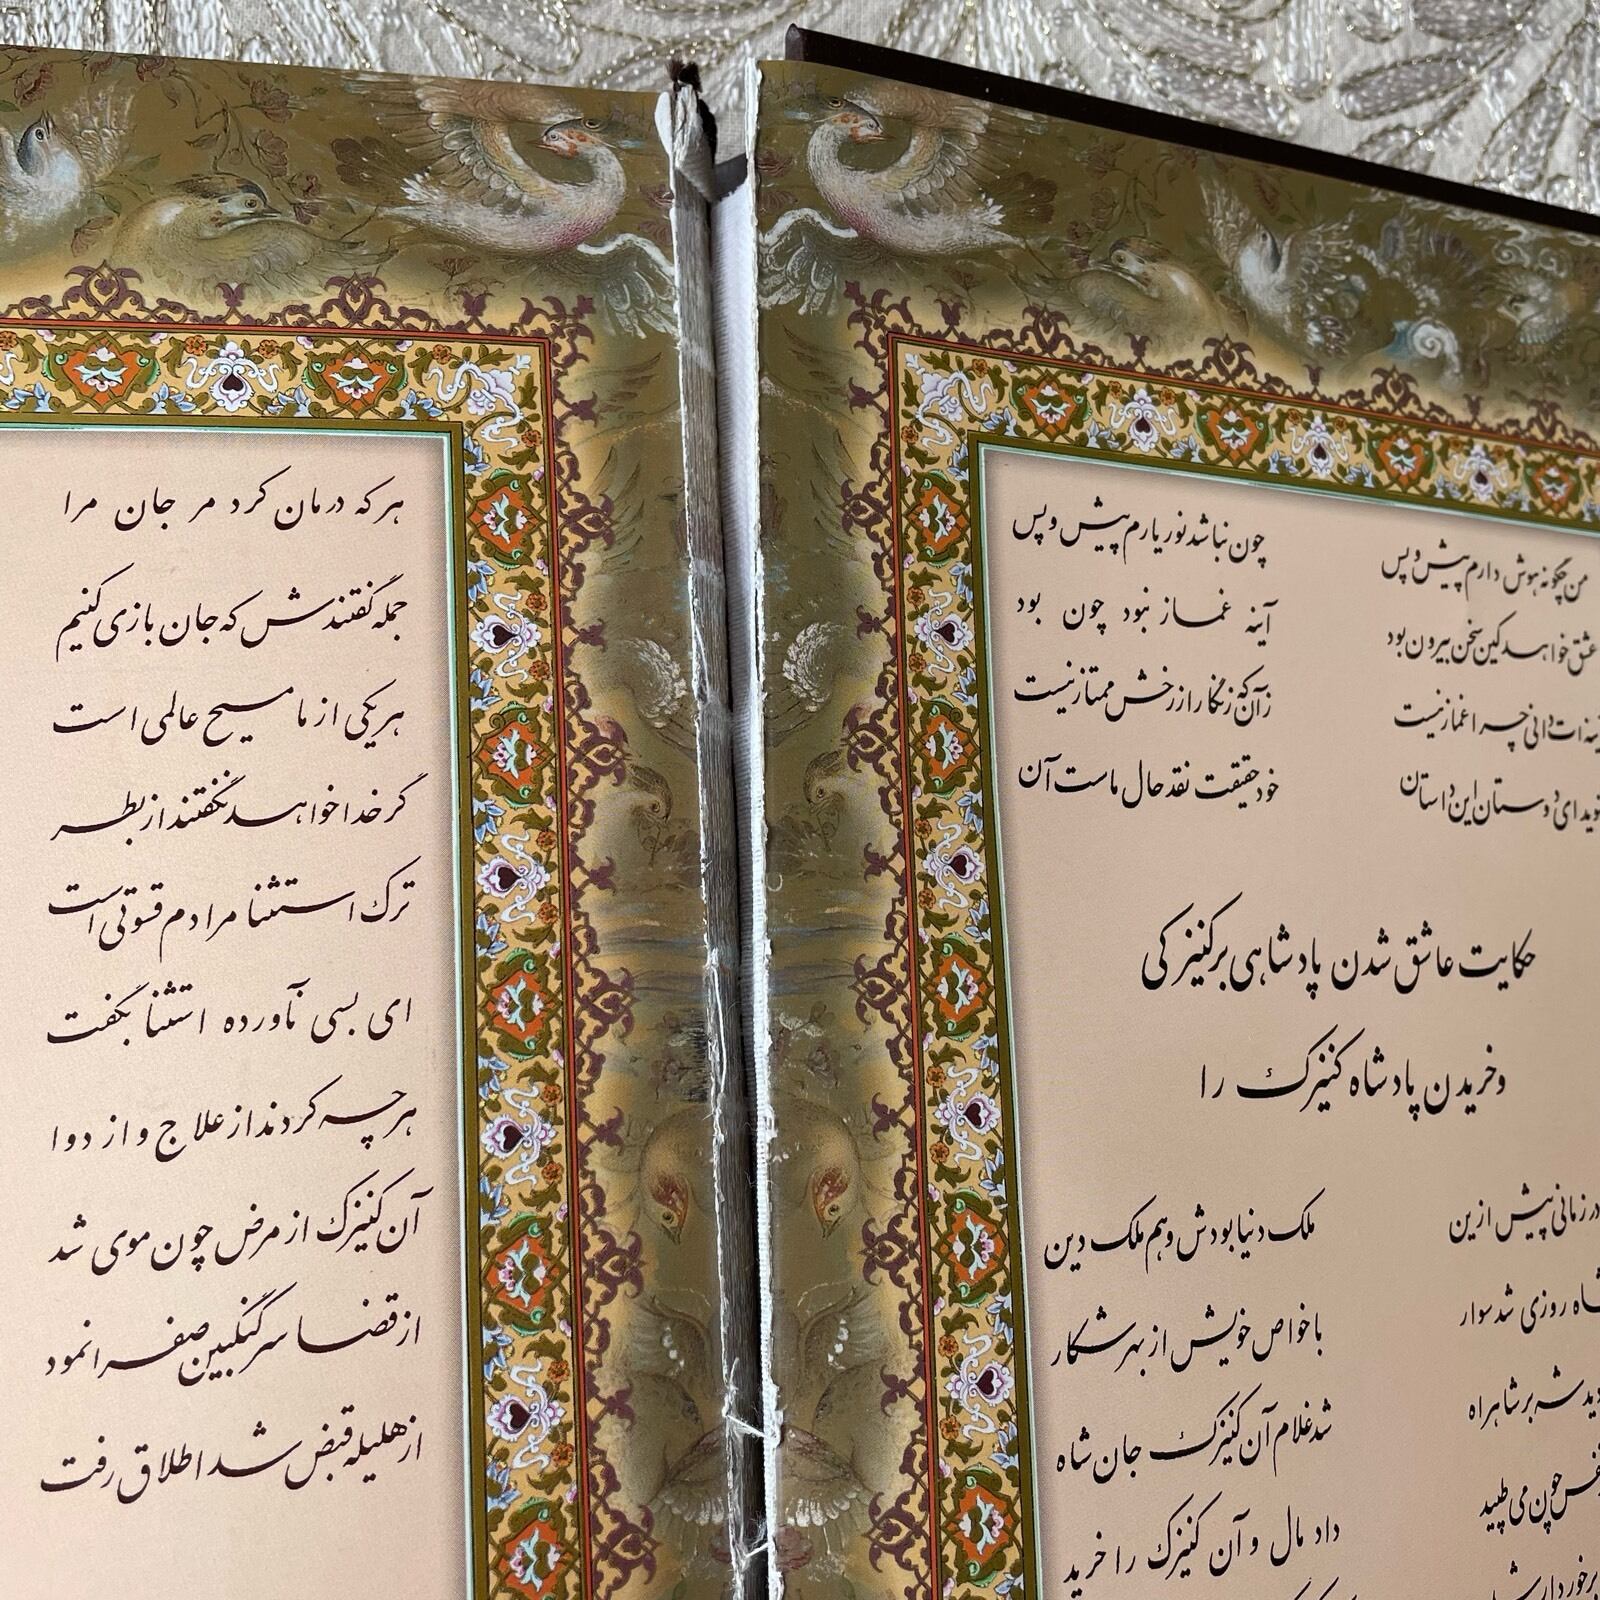 من چگونه هوش دارم پیش و پس چون نباشد نور یارم پیش و پس
عشق خواهد کین سخن بیرون بود آینه غماز نبود چون بود
دانی چرا غماز نیست زآن که زنگار از رخش ممتاز نیست
ای دوستان این داستان خود حقیقت نقد حال ماست آن
حکایت عاشق شدن پادشاهی بر کنیزکی
و خریدن پادشاه کنیزک را
در زمانی پیش از این ملک دنیا بودش و هم ملک دین
روزی شد سوار با خواص خویش از بهر شکار
دید شه بر شاهراه شد غلام آن کنیزک جان شاه
چون می طپید داد مال و آن کنیزک را خرید
هر که درمان کرد مر جان مرا
جمله گفتندش که جان بازی کنیم
هر یکی از ما مسیح عالمی است
گر خدا خواهد نگفتند از بطر
ترک استثنا مرادم قسوتی است
ای بسی نآورده استثنا بگفت
هر چه کردند از علاج و از دوا
آن کنیزک از مرض چون موی شد
از قضا سرکنگبین صفرا نمود
از هلیله قبض شد اطلاق رفت